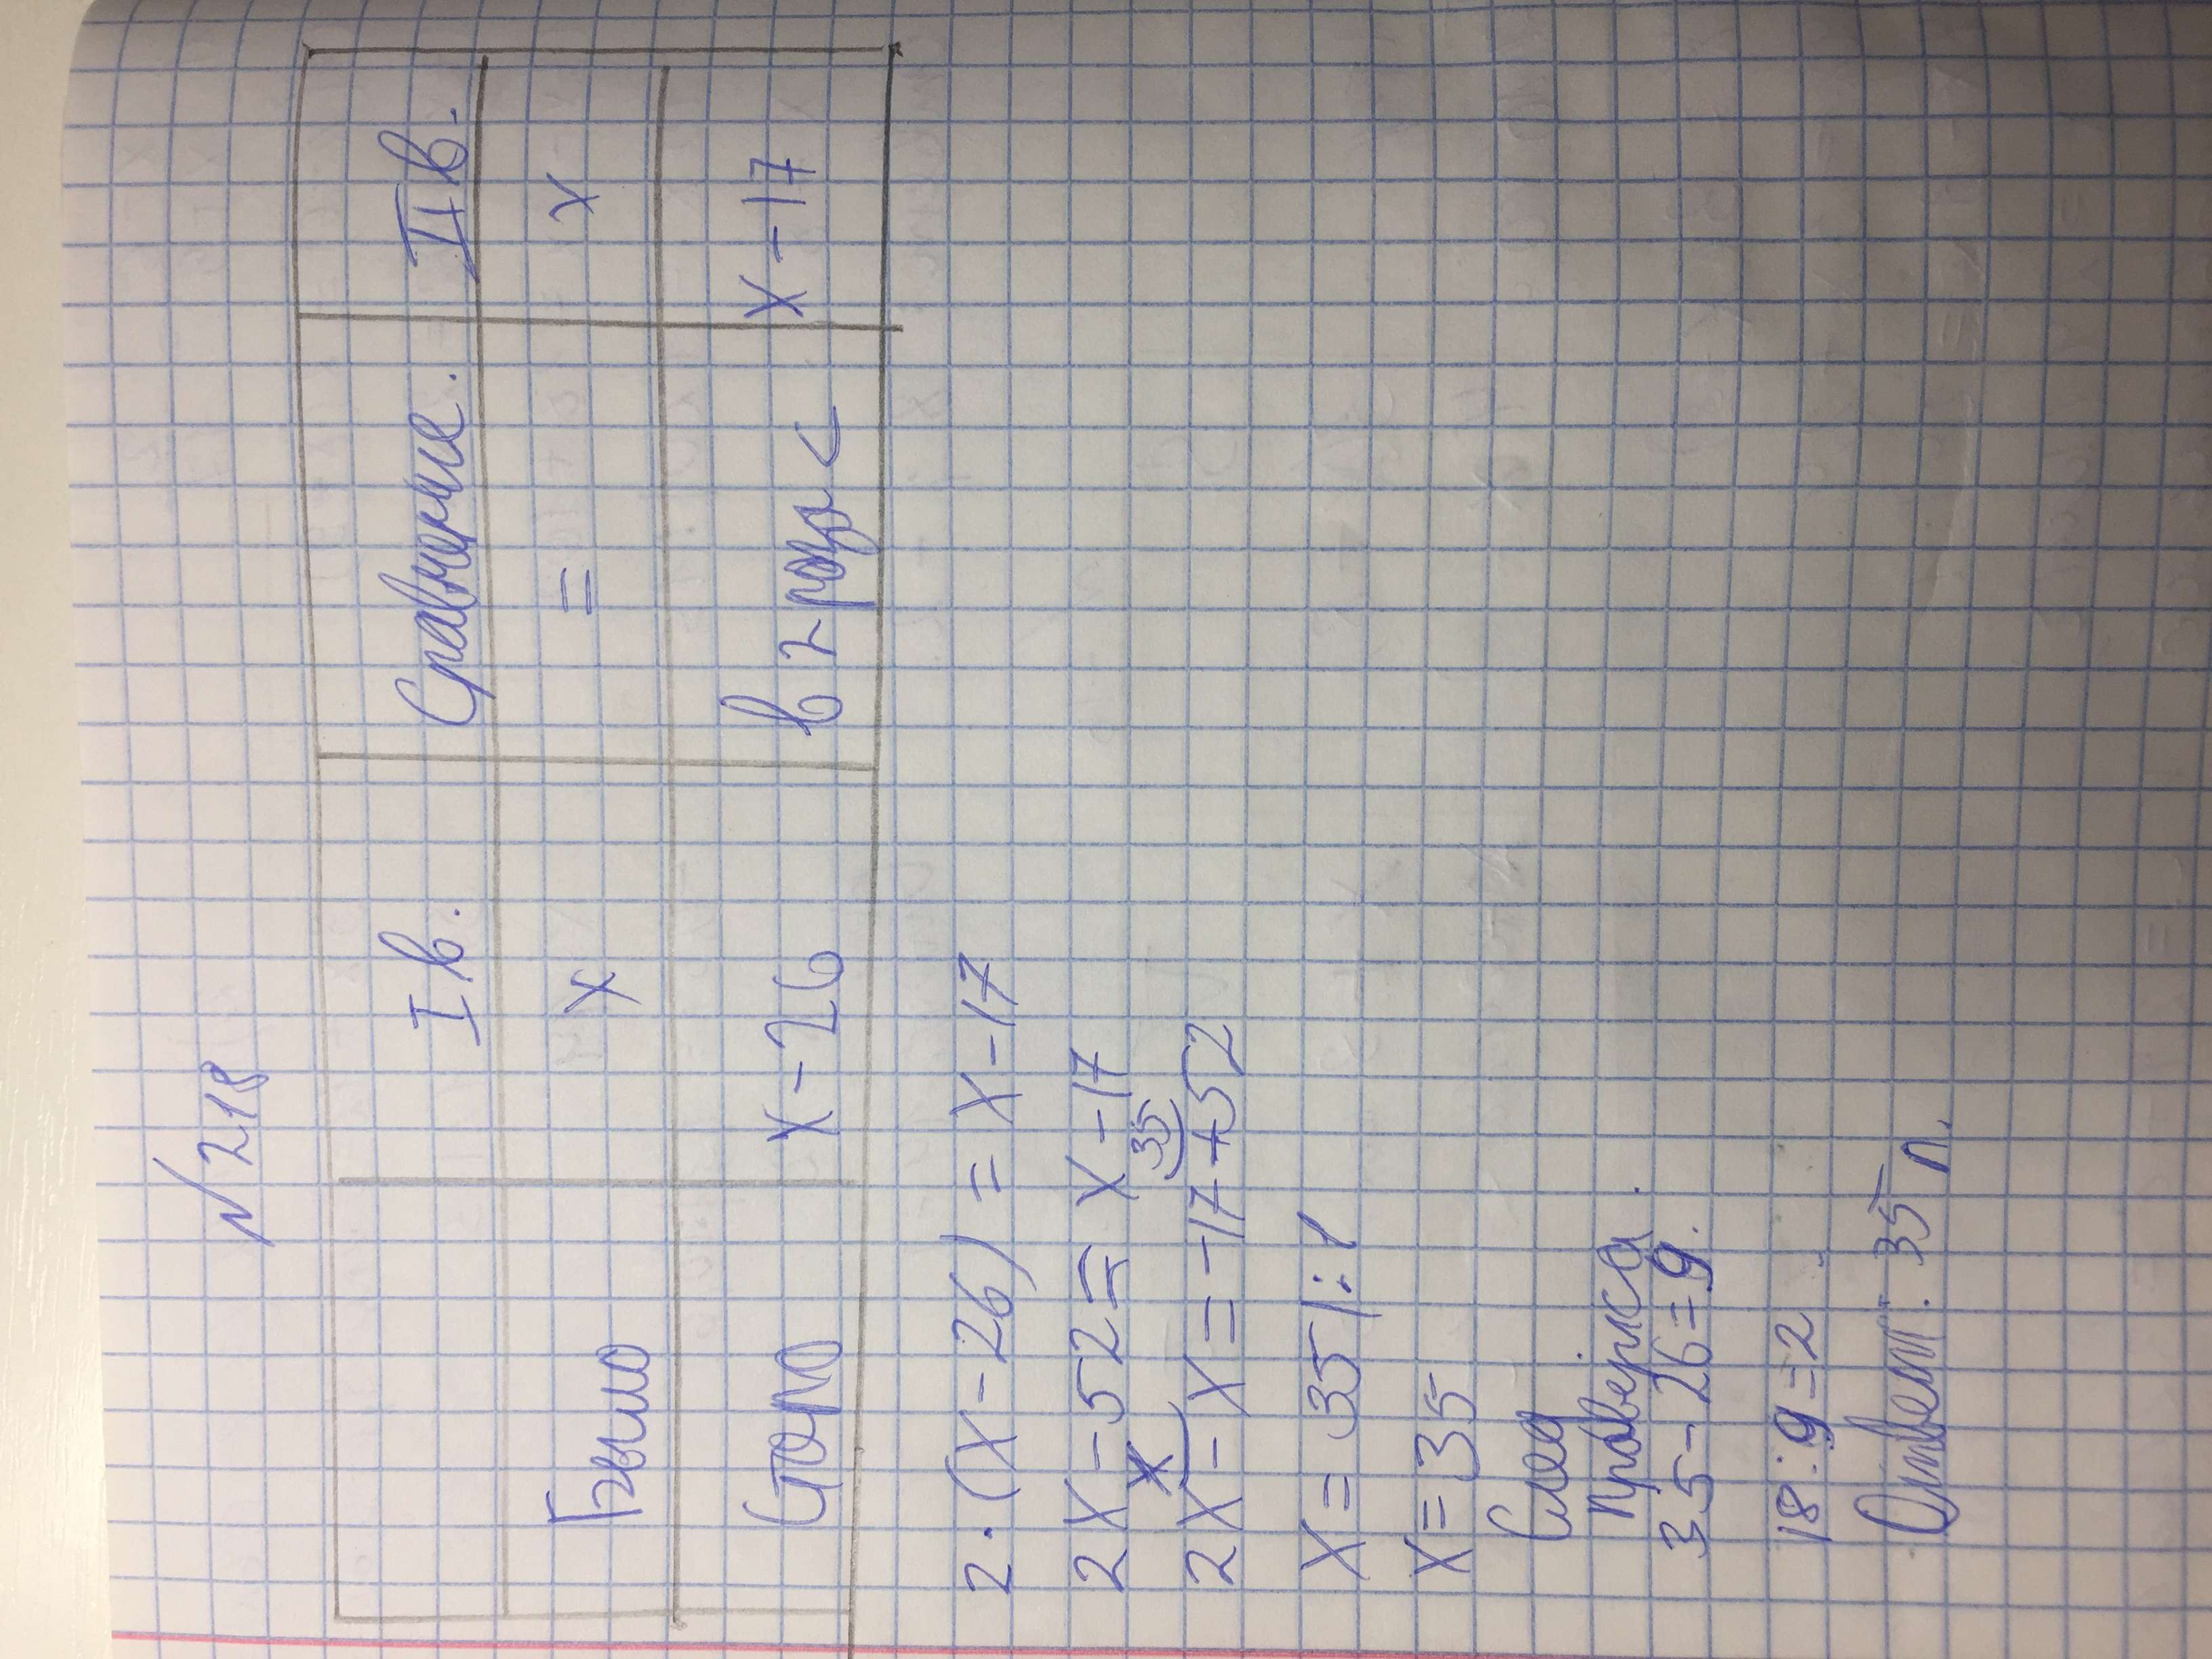 № 218
I в. Сравнение. II в.
Было x = x
Стало x-26 в 2 раза < x-17
2·(x-26) = x-17
2x-52 = x-17
x 35
2x-x = -17+52
x = 35 |:1
x = 35
След
проверка.
35-26=9.
18:9=2
Ответ: 35 п.